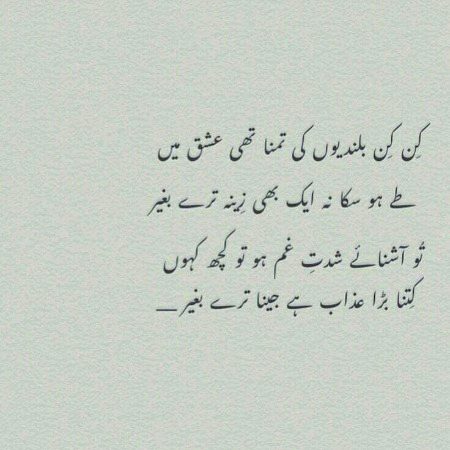 کِن کِن بلندیوں کی تمنا تھی عشق میں
طے ہو سکا نہ ایک بھی زِینہ ترے بغیر
تُو آشنائے شدتِ غم ہو تو کچھ کہوں
کِتنا بڑا عذاب ہے جینا ترے بغیر __